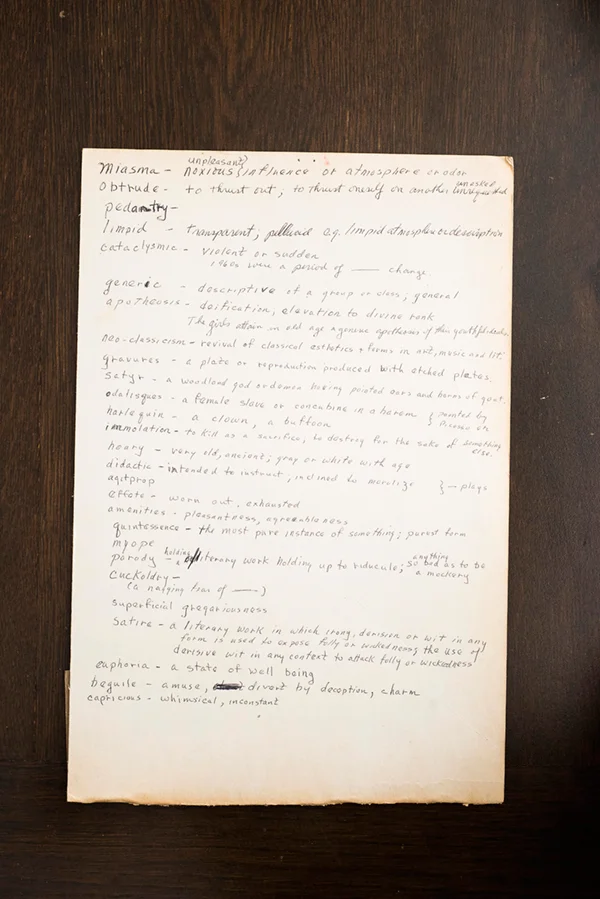 unpleasant}
Miasma - noxious {influence or atmosphere or odor
unasked
Obtrude - to thrust out; to thrust oneself on another unrequested
pedantry -
limpid - transparent; pellucid e.g. limpid atmosphere or description
cataclysmic - violent or sudden
1960s were a period of —— change
generic - descriptive of a group or class; general
apotheosis - deification, elevation to divine rank
The girls attain in old age a genuine apotheosis of their youthful
neo-classicism - revival of classical esthetics + forms in art, music and lit.
gravures - a plate or reproduction produced with etched plates.
Satyr - a woodland god or demon having pointed ears and horns of goat.
odalisques - a female slave or concubine in a harem } painted by
harlequin - a clown, a buffoon } Picasso etc
immolation - to kill as a sacrifice, to destroy for the sake of something
else.
hoary - very old, ancient; gray or white with age
didactic - intended to instruct, inclined to moralize } - plays
agitprop
effete - worn out, exhausted
amenities - pleasantness, agreeableness
quintessence - the most pure instance of something; purest form
myope
holding anything
parody - a literary work holding up to riducule; so bad as to be
a mockery
Cuckoldry -
(a nagging fear of ——)
superficial gregariousness
Satire - a literary work in which irony, derision or wit in any
form is used to expose folly or wickedness; the use of
derisive wit in any context to attack folly or wickedness
euphoria - a state of well being
beguile - amuse, divert by deception, charm
capricious - whimsical, inconstant